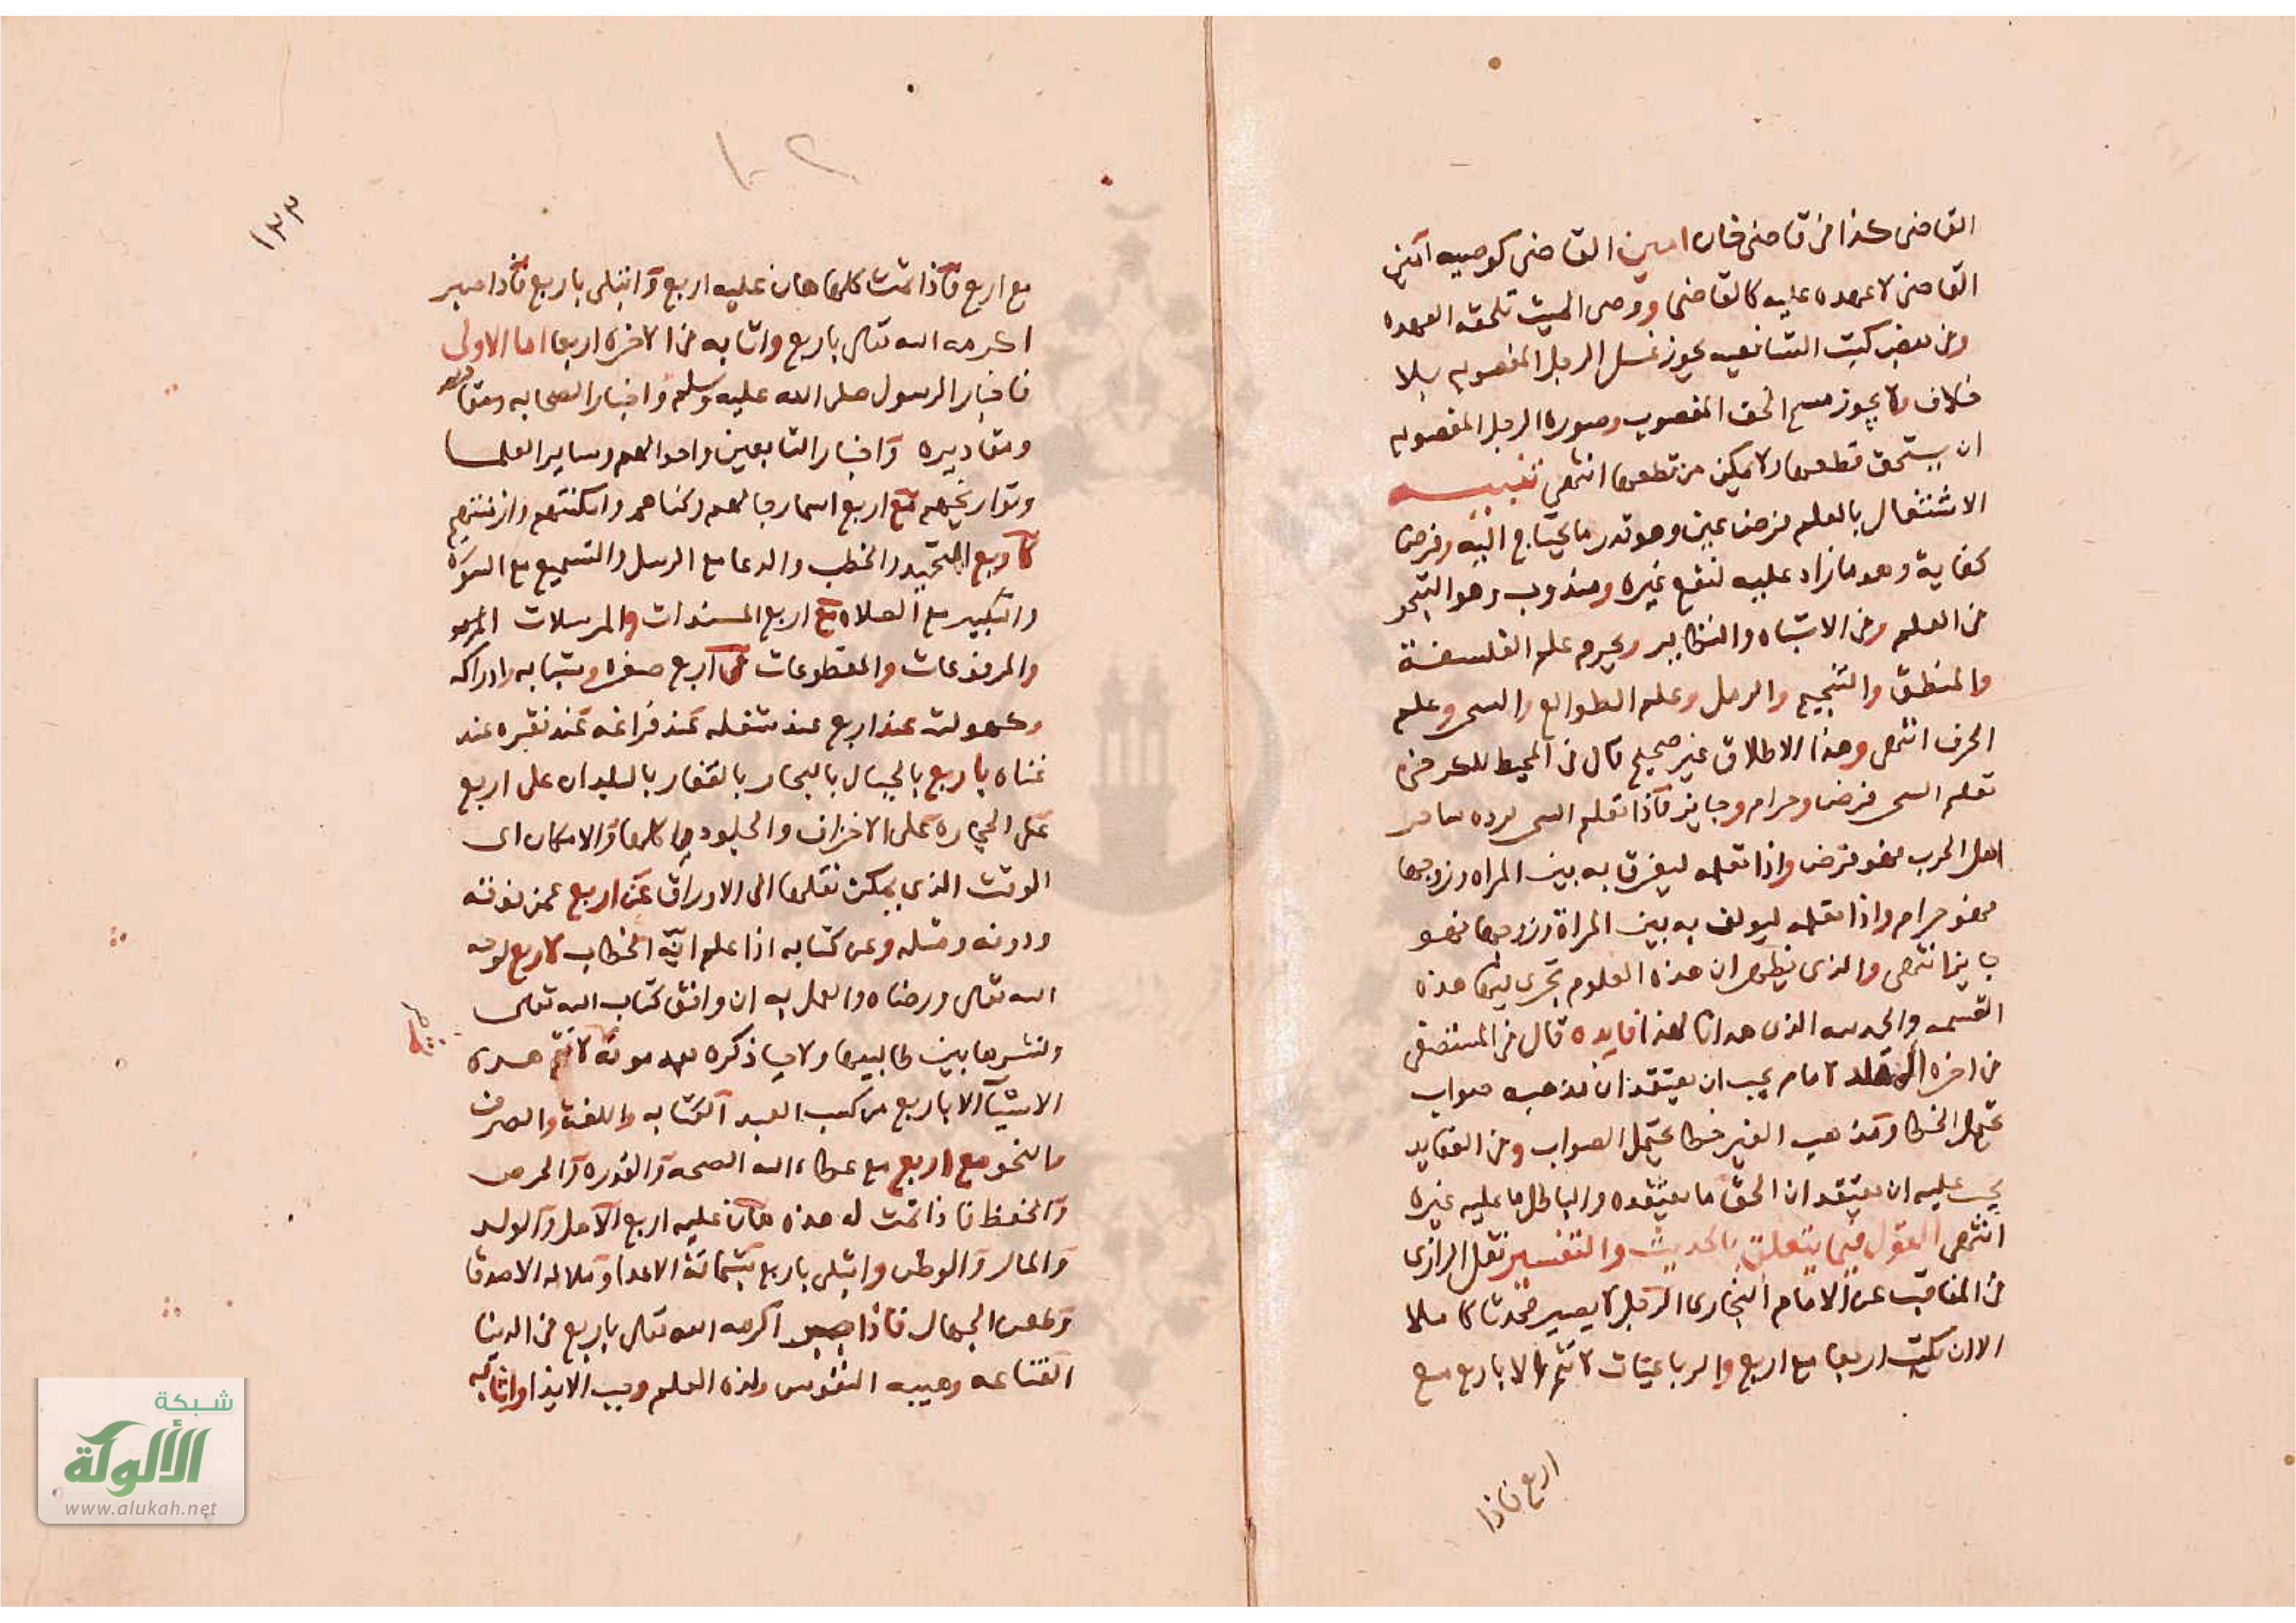 القاضى كذا فى قاضى خان امين القاضى كوصيه امين
القاضى لا عهده عليه كالقاضى ووصى الميت تلحقه العهده
وفى بعض كتب الشافعيه يجوز غسل الرجل المغصوبه بلا
خلاف ولا يجوز مسح الخف المغصوب وصورة الرجل المغصوبه
ان يستحق قطعها ولا يمكن من قطعها انتهى تنبيه
الاشتغال بالعلم فرض عين وهو قدر ما يحتاج اليه وفرض
كفاية وهو ما زاد عليه لنفع غيره ومندوب وهو التبحر
فى العلم وفى الاشباه والنظاير ويحرم علم الفلسفة
والمنطق والتنجيم والرمل وعلم الطوالع والسحر وعلم
الحرف انتهى وهذا الاطلاق غير صحيح قال فى المحيط للسرخسى
تعلم السحر فرض وحرام وجايز فاذا تعلم السحر لرده ساحر
اهل الحرب فهو فرض واذا تعلمه ليفرق به بين المراه وزوجها
فهو حرام واذا تعلمه ليولف به بين المراة وزوجها فهو
جايز انتهى والذى يظهر ان هذه العلوم تجرى فيها هذه
القسمه والحمد لله الذى هدانا لهذا فايده قال فى المستصفى
فى اخره المقلد لامام يجب ان يعتقد ان مذهبه صواب
يحتمل الخطا ومذهب الغير خطا يحتمل الصواب وفى العقايد
يجب عليه ان يعتقد ان الحق ما يعتقده والباطل ما عليه غيره
انتهى القول فيما يتعلق بالحديث والتفسير نقل الرازى
فى المناقب عن الامام البخارى الرجل لا يصير محدثا كاملا
الا ان يكتب اربعا مع اربع والرباعيات لا تتم الا باربع مع
اربع فاذا
١٣٣
١٠٢
مع اربع فاذا تمت كلها هان عليه اربع وابتلى باربع فاذا صبر
اكرمه الله تعالى باربع واثابه فى الاخره اربعا اما الاولى
فاخبار الرسول صلى الله عليه وسلم واخبار الصحابه
ومقاديره واخبار التابعين واحوالهم وساير العلما
وتواريخهم مع اربع اسما رجالهم وكناهم وامكنتهم وازمنتهم
كاربع التحميد والخطب والدعا مع الرسل والتسميع مع السورة
والتكبير مع الصلاه مع اربع المسندات والمرسلات
والمرفوعات والمقطوعات فى اربع صغره وشبابه وادراكه
وكهولته عند اربع عند شغله عند فراغه عند فقره عند
غناه باربع بالجبال بالبحار بالقفار بالبلدان على اربع
على الحجاره على الاخزاف والجلود كلها والامكان الى
الوقت الذى يمكن نقلها الى الاوراق عن اربع عمن فوقه
ودونه ومثله وعن كتابه اذا علم انه الخطاب لاربع لوجه
الله تعالى ورضاه والعمل به ان وافق كتاب الله تعالى
ونشرها بين طالبيها ولاحيا ذكره بعد موته لا تتم هذه
الاشيا الا باربع من كسب العبد الكتابه واللغة والصرف
والنحو مع اربع مع عطا الله الصحه والقدره والحرص
والحفظ فاذا تمت له هذه هان عليه اربع الاهل والولد
والمال والوطن وابتلى باربع بشماتة الاعدا وملامه الاصدقا
وطعن الجهال فاذا صبر اكرمه الله تعالى باربع فى الدنيا
القناعه وهيبه النفوس ولذه العلم وحب الابد واثابه
شبكة
الألوكة
www.alukah.net